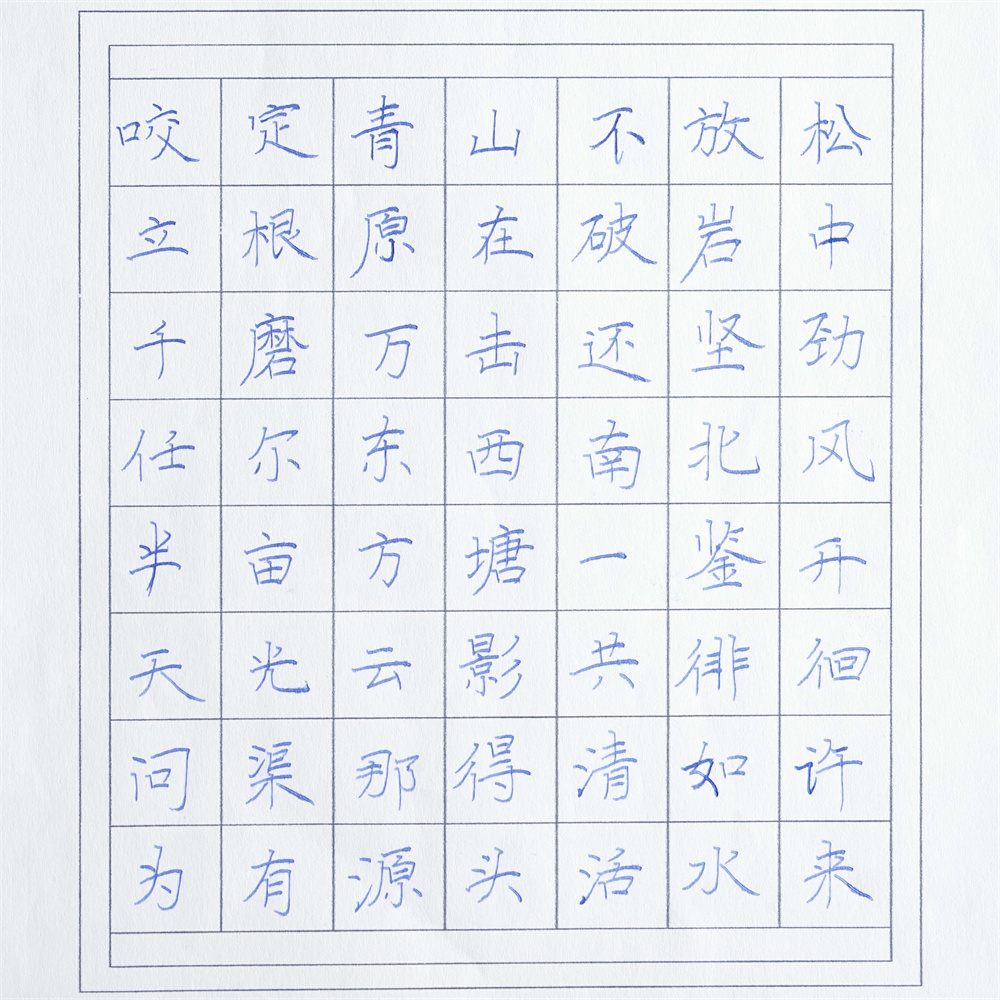 咬定青山不放松
立根原在破岩中
千磨万击还坚劲
任尔东西南北风
半亩方塘一鉴开
天光云影共徘徊
问渠那得清如许
为有源头活水来